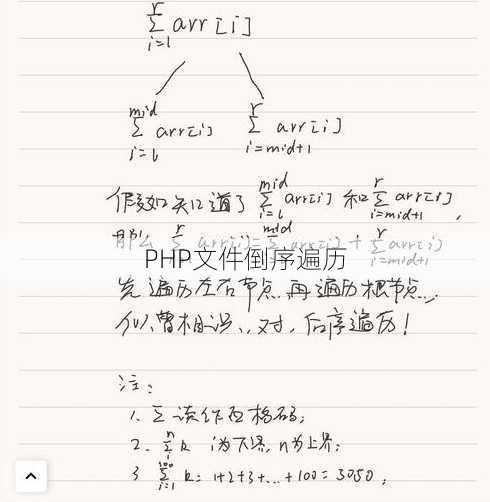 r
Σ arr[i]
i=l
mid
Σ arr[i]
i=l
r
Σ arr[i]
i=mid+1
假如知道了 mid Σ i=l arr[i] 和 r Σ i=mid+1 arr[i],
那么 r Σ arr[i] = mid Σ arr[i] + r Σ i=mid+1 arr[i]
PHP文件倒序遍历
先遍历左右节点,再遍历根节点...
似曾相识..,对,后序遍历!
注:
1. Σ读作西格玛;
2. n Σ i k i为下界, n为上界;
3 100 Σ i=1 k = 1+2+3+...+100 = 5050;